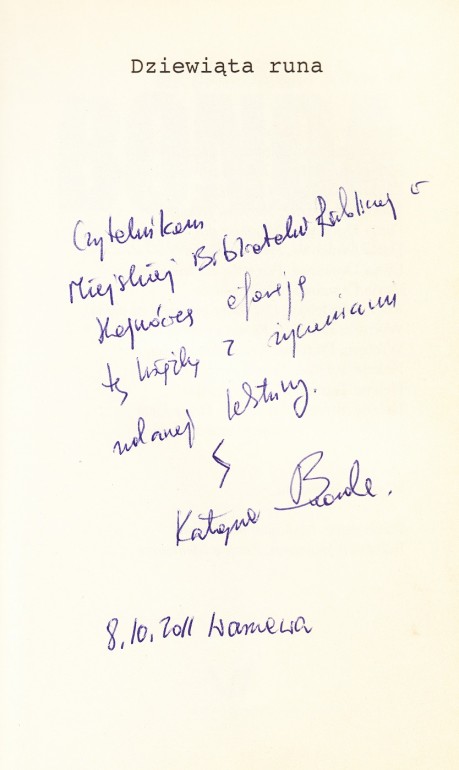 Dziewiąta runa
Czytelnikom
Miejskiej Biblioteki Publicznej w
Hajnówce ofiaruję
tę książkę z życzeniami
udanej lektury.
Katarzyna
8.10.2011 Warszawa